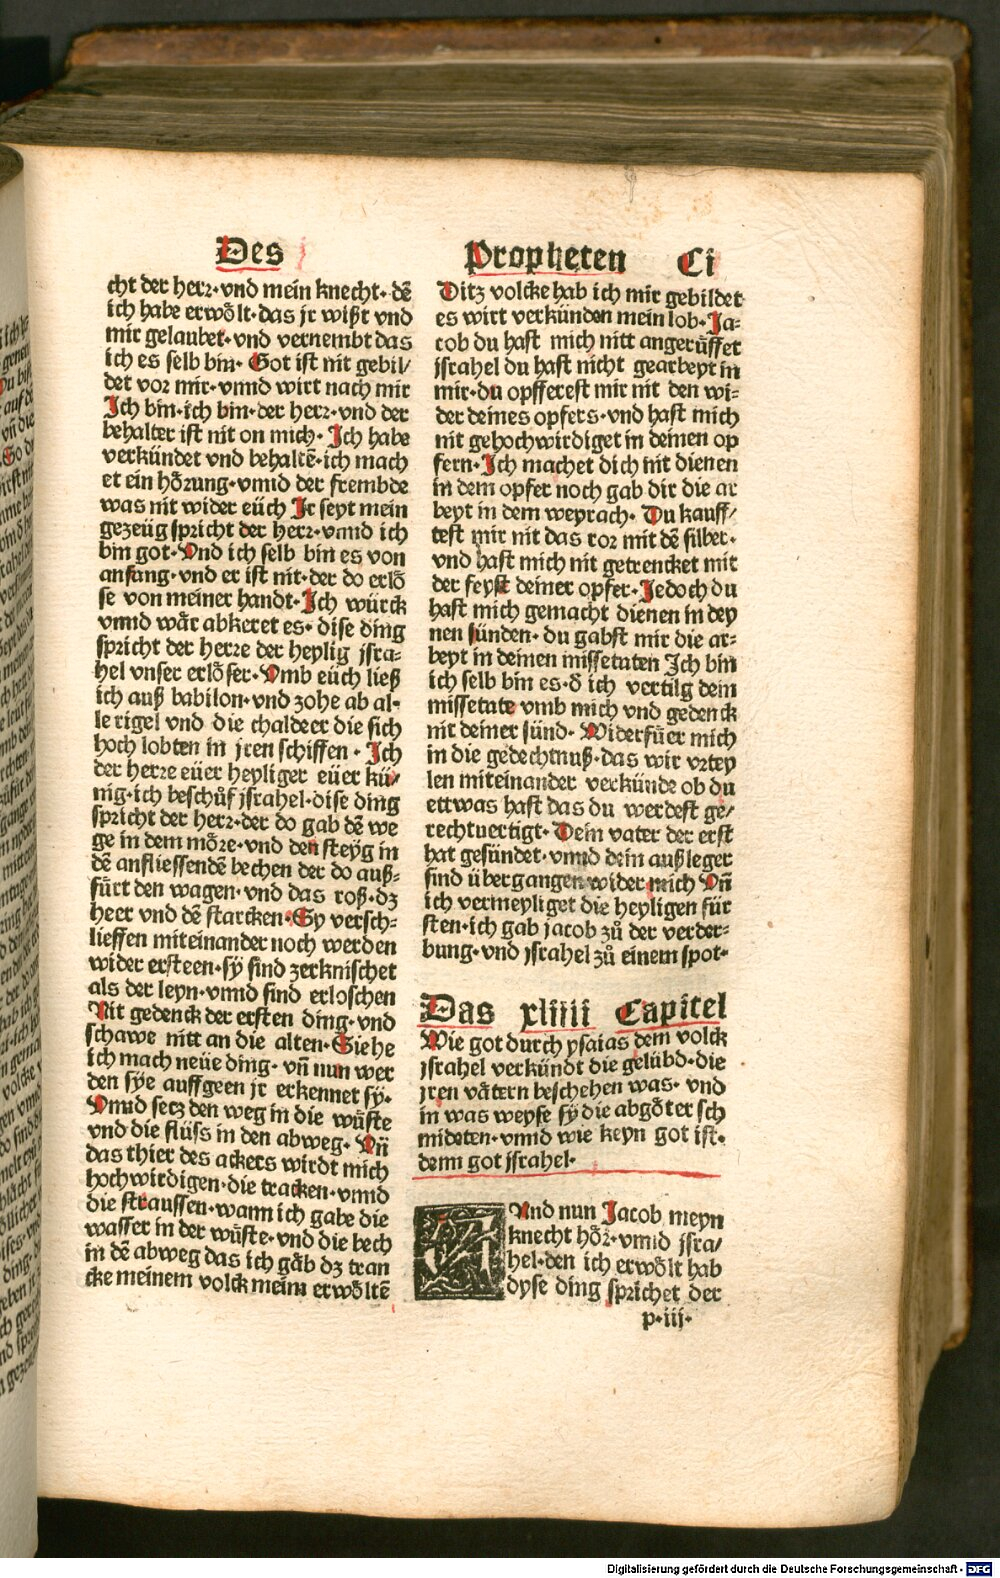 Des
Propheten Ci
cht der herr·vnd mein knecht·dē
ich habe erwoͤlt·das jr wißt vnd
mir gelaubet·vnd vernembt das
ich es selb bin· Got ist nit gebil/
det vor mir·vnnd wirt nach mir
Ich bin·ich bin·der herr·vnd der
behalter ist nit on mich· Ich habe
verkündet vnd behaltē·ich mach
et ein hoͤrung·vnnd der frembde
was nit wider eüch Ir seyt mein
gezeüg spricht der herr·vnnd ich
bin got·Vnd ich selb bin es von
anfang·vnd er ist nit·der do erloͤ
se von meiner handt·Ich würck
vnnd waͤr abkeret es·dise ding
spricht der herre der heylig jsra⸗
hel vnser erloͤser·Vmb eüch ließ
ich auß babilon·vnd zohe ab al⸗
le rigel vnd die chaldeer die sich
hoch lobten in jren schiffen· Ich
der herre eüer heyliger eüer kü/
nig·ich beschuͤf jsrahel·dise ding
spricht der herr·der do gab dē we
ge in dem moͤre·vnd den steyg in
dē anfliessendē bechen der do auß⸗
fuͤrt den wagen·vnd das roß·dz
heer vnd dē starcken·Sy versch⸗
lieffen miteinander noch werden
wider ersteen·sÿ sind zerknischet
als der leyn·vnnd sind erloschen
Nit gedenck der ersten ding·vnd
schawe nitt an die alten·Siehe
ich mach neüe ding·vñ nun wer
den sÿe auffgeen jr erkennet sÿ·
Vnnd setz den weg in die wuͤste
vnd die flüss in den abweg· Vñ
das thier des ackers wirdt mich
hochwirdigen·die tracken·vnnd
die straussen·wann ich gabe die
wasser in der wuͤste·vnd die bech
in dē abweg das ich gaͤb dz tran
cke meinem volck meim erwoͤltē
Ditz volcke hab ich mir gebildet
es wirt verkünden mein lob·Ja⸗
cob du hast mich nitt angeruͤffet
jsrahel du hast nicht gearbeyt in
mir·du opfferest mir nit den wi⸗
der deines opfers·vnd hast mich
nit gehochwirdiget in deinen op
fern·Ich machet dich nit dienen
in dem opfer noch gab dir die ar
beyt in dem weyrach· Du kauff/
test mir nit das ror mit dē silber·
vnd hast mich nit getrencket mit
der feyst deiner opfer·Jedoch du
hast mich gemacht dienen in dey
nen sünden·du gabst mir die ar⸗
beyt in deinen missetaten Ich bin
ich selb bin es·ð ich vertilg dein
missetate vmb mich vnd gedenck
nit deiner sünd· Widerfuͤer mich
in die gedechtnuß·das wir vrtey
len miteinander verkünde ob du
ettwas hast das du werdest ge/
rechtuertigt· Dein vater der erst
hat gesündet·vnnd dein außleger
sind übergangen wider mich Vñ
ich vermeyliget die heyligen für
sten·ich gab jacob zuͦ der verder⸗
bung·vnd jsrahel zuͦ einem spot·
Das xliiii Capitel
Wie got durch ysaias dem volck
jsrahel verkündt die gelübd·die
jren vaͤtern beschehen was· vnd
in was weyse sÿ die abgoͤter sch
mideten·vnnd wie keyn got ist·
denn got jsrahel·
Vnd nun Jacob meyn
knecht hoͤr·vnnd jsra/
hel·den ich erwoͤlt hab
dyse ding sprichet der
p·iij·
Digitalisierung gefördert durch die Deutsche Forschungsgemeinschaft - DFG